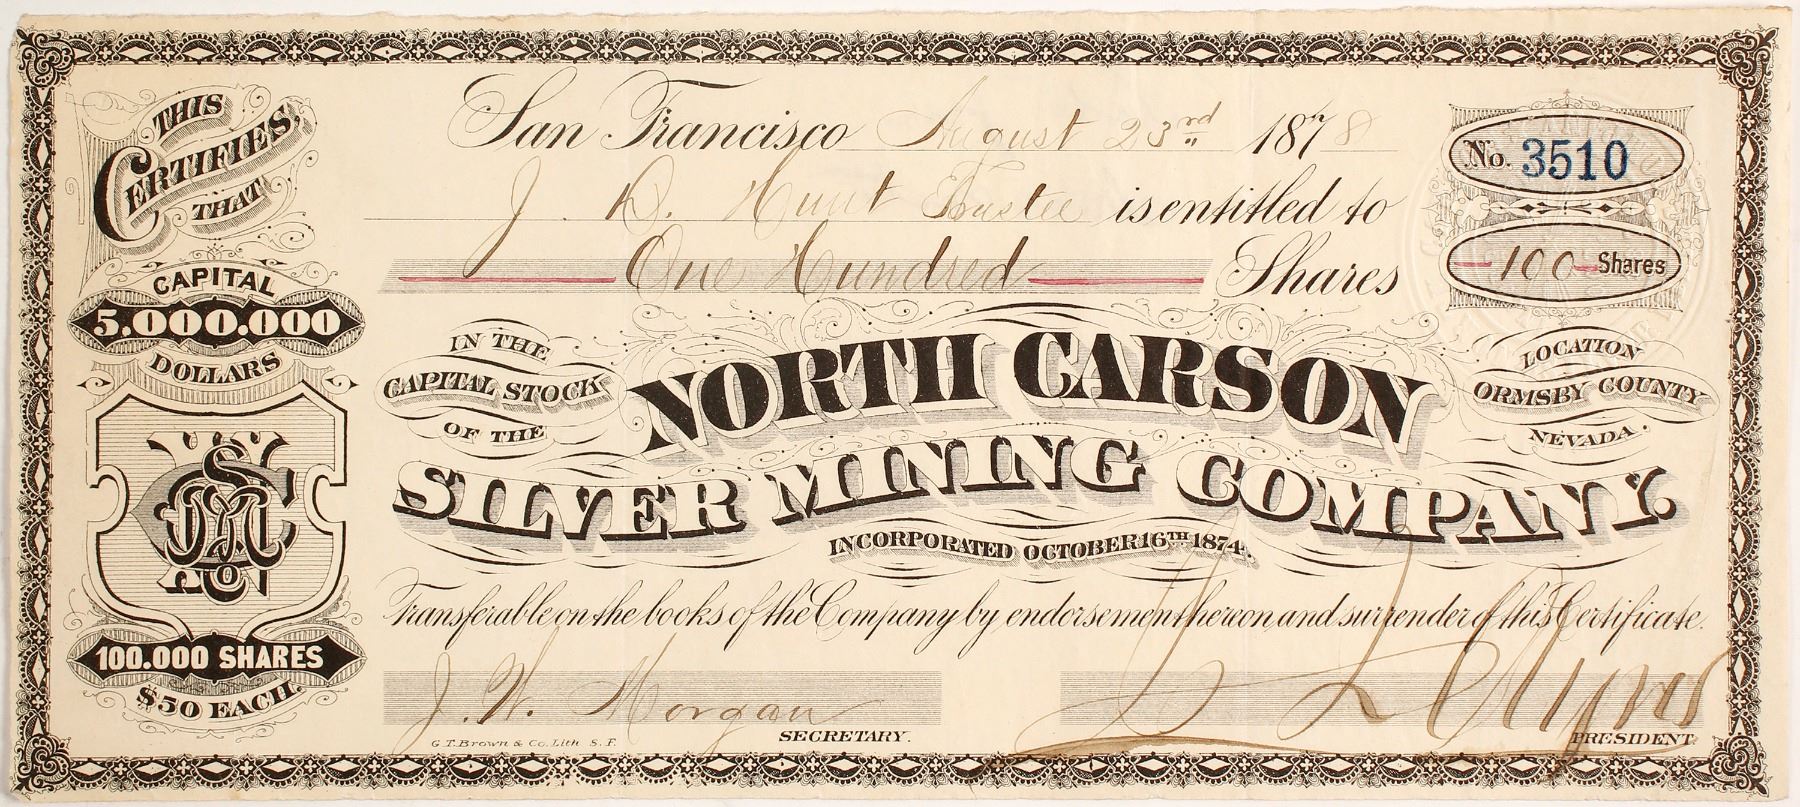 THIS
CERTIFIES,
THAT
CAPITAL
5.000.000
DOLLARS
100.000 SHARES
$50 EACH.
San Francisco August 23rd 1878
J. D. Hunt Trustee is entitled to
One Hundred Shares
No. 3510
100 Shares
IN THE
CAPITAL STOCK
OF THE
NORTH CARSON
SILVER MINING COMPANY.
INCORPORATED OCTOBER 16TH 1874.
LOCATION
ORMSBY COUNTY
NEVADA.
Transferable on the books of the Company by endorsement hereon and surrender of this Certificate.
J. W. Morgan
SECRETARY.
PRESIDENT.
G. T. Brown & Co. Lith S. F.